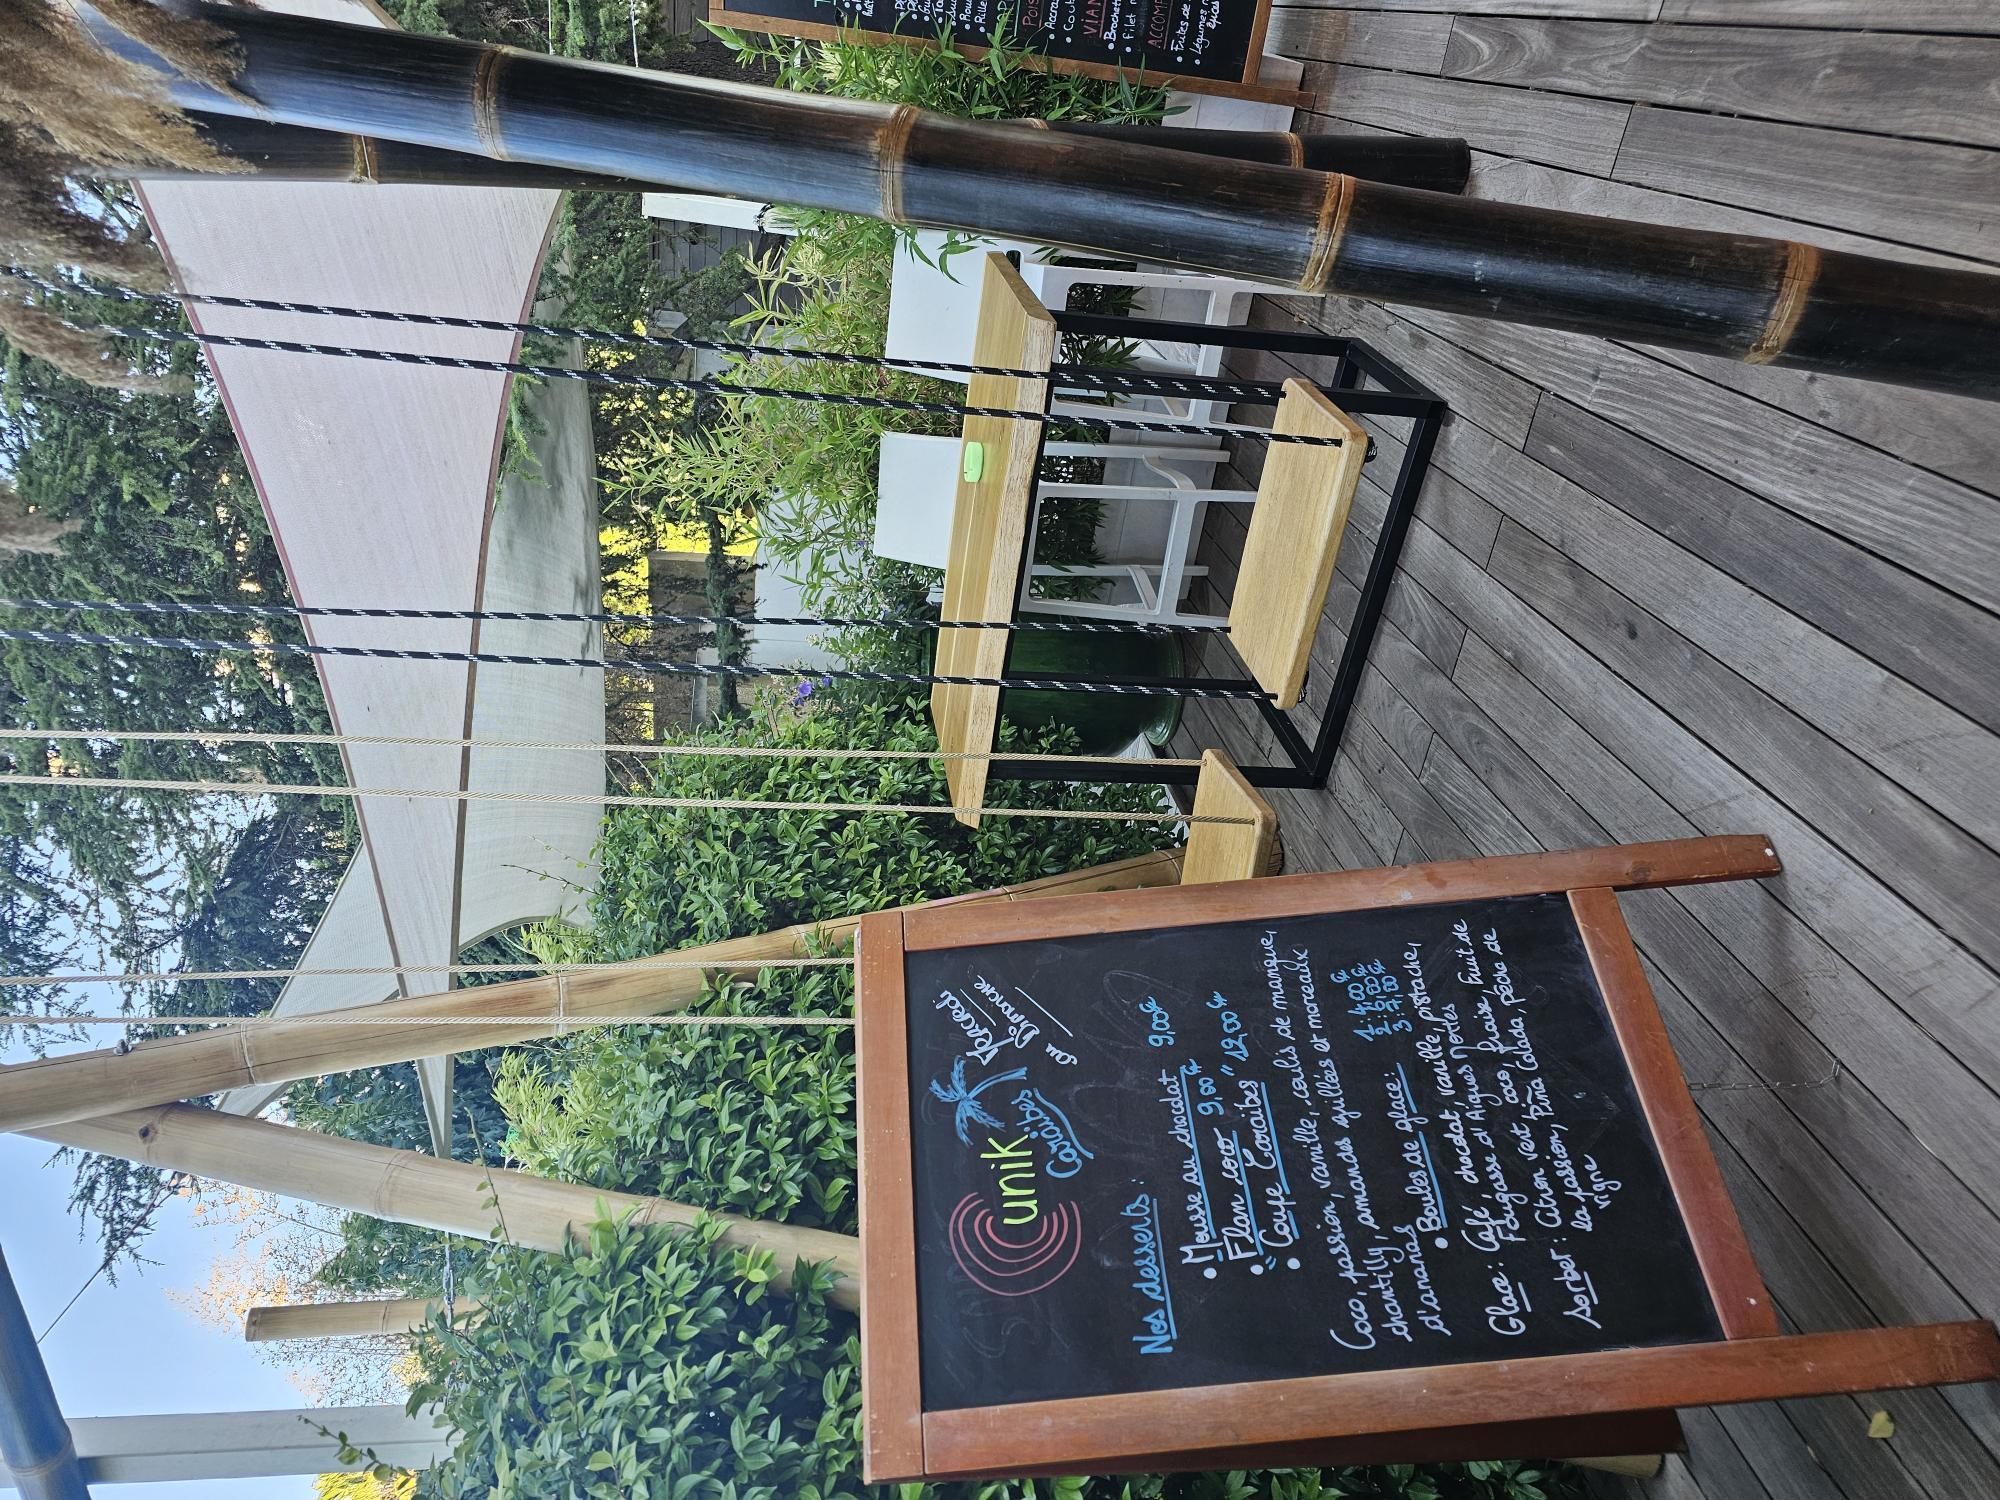 Cunik
Caraïbes
Mercredi
au Dimanche
Nos desserts :
• Mousse au chocolat 9,00€
• Flan coco 9,00€
• "Coupe Caraibes" 12,00€
Coco, passion, vanille, coulis de mangue,
chantilly, amandes grillées et morceaux
d'ananas
• Boules de glace : 1 : 4,00€
2 : 6,00€
3 : 7,00€
Glace : Café, chocolat, vanille, pistache,
Fougasse d'Aigues Mortes
Sorbet : Citron vert, coco, fraise, Fruit de
la passion, Piña Colada, pêche de
vigne
POIS
• Accra
VIAN
• Brochet
• Filet
ACCOMP
• Frites de
• Légumes